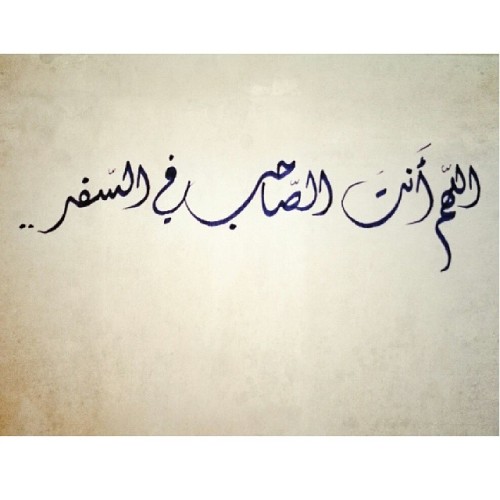 اللّهم أَنتَ الصّاحب في السّفر ..